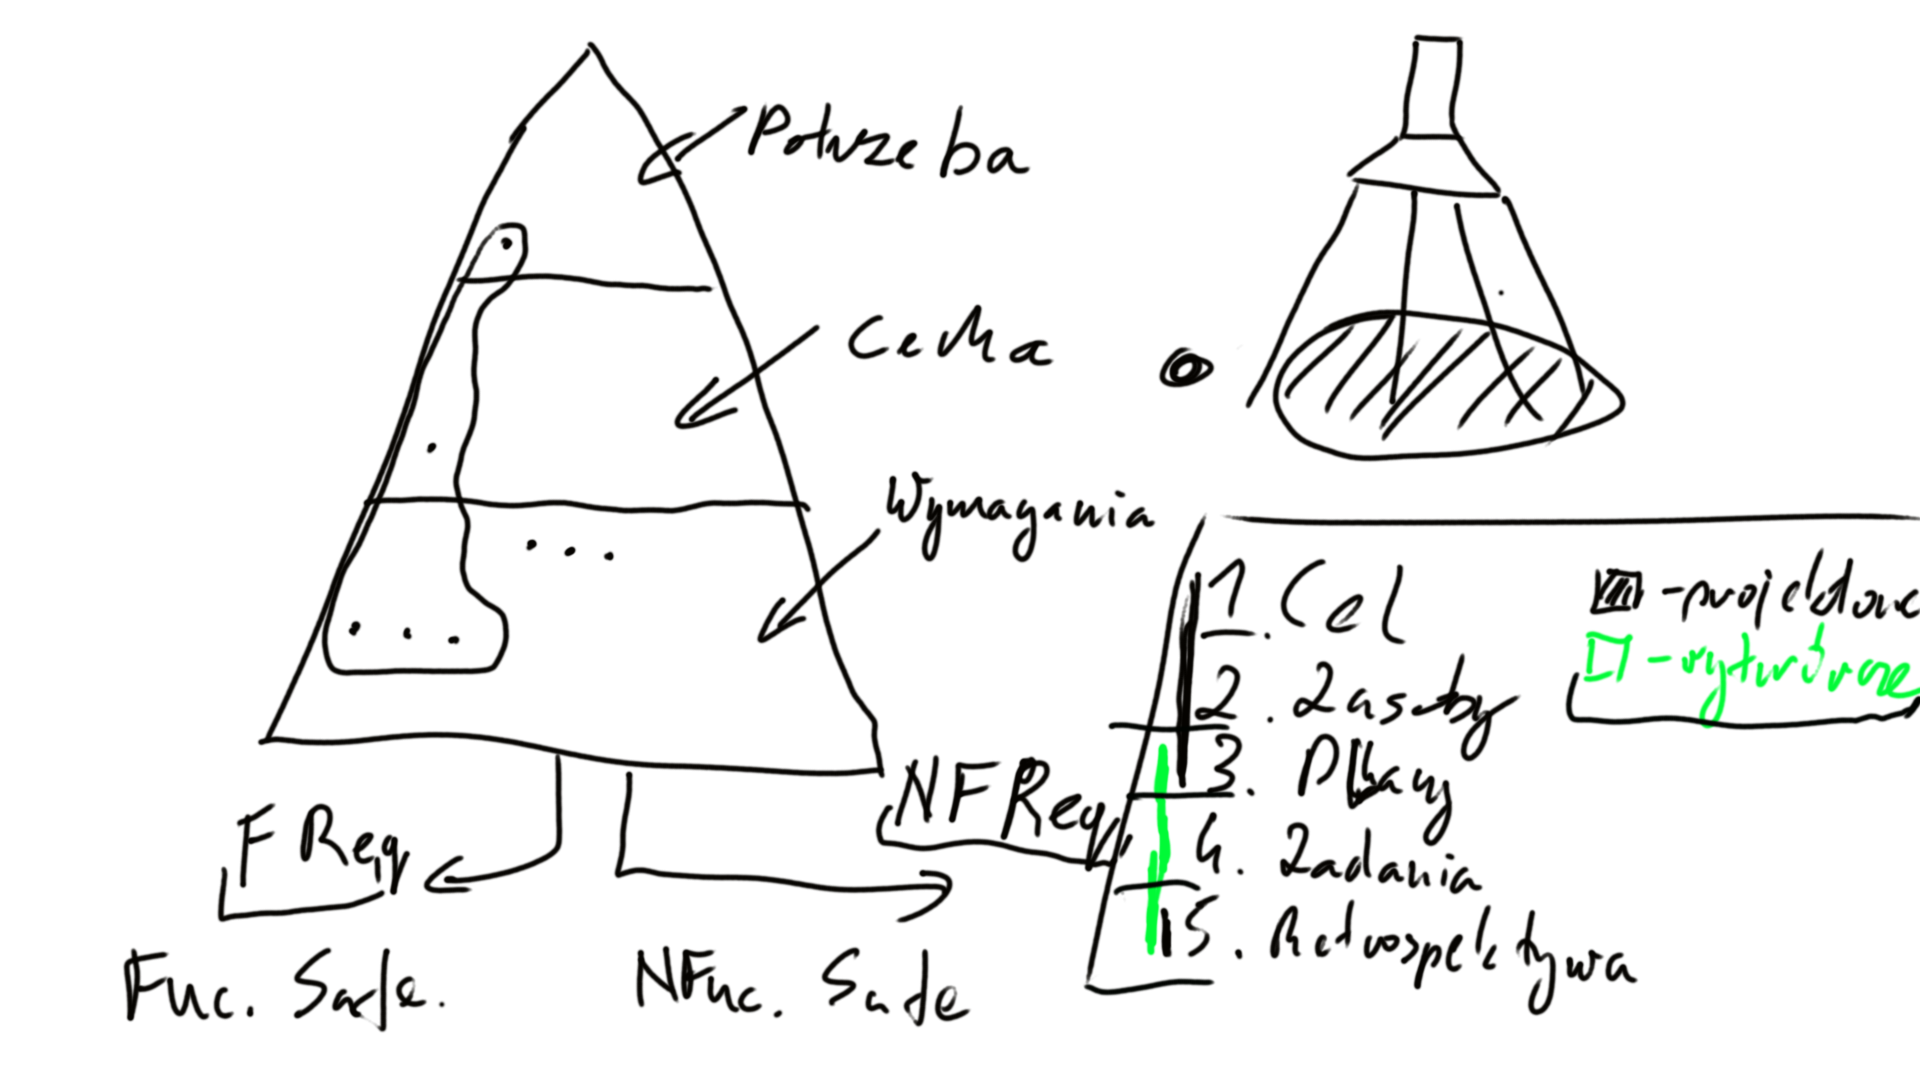 Potrzeba
Cecha
Wymagania
F Req
NFReq
Func. Safe.
NFunc. Safe
1. Cel
2. Zasoby
3. Plany
4. Zadania
5. Retrospektywa
- projektowe
- wytwórcze